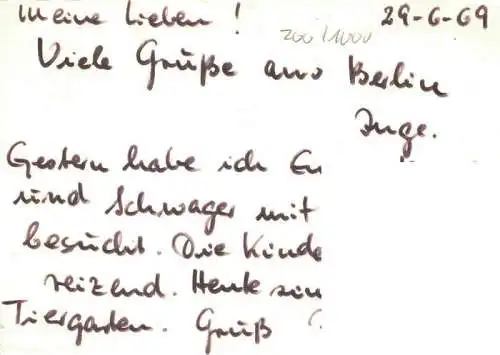 Meine Lieben! 29-6-69
200/1000
Viele Grüße aus Berlin
Inge.
Gestern habe ich Eu
und Schwager mit
besucht. Die Kinde
reizend. Heute sin
Tiergarten. Gruß